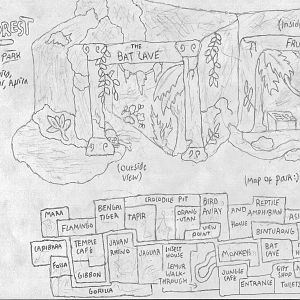 OREST
PARK
(Inside
FRU
THE
BAT CAVE
(Outside
view)
(Map of park:)
MARA
FLAMINGO
BENGAL
TIGER
TAPIR
CROCODILE PIT
ORANG
-UTAN
BIRD
AVIARY
VIEW
POINT
AND
HOUSE
REPTILE
AMPHIBIAN
BINTURONG
CAPIBARA
FOSSA
TEMPLE
CAFÉ
GIBBON
JAVAN
RHINO
JAGUAR
INSECT
HOUSE
LEMUR
WALK-
THROUGH
MONKEYS
JUNGLE
CAFE
BAT
CAVE
ENTRANCE
GIFT
SHOP
TOILETS
GORILLA